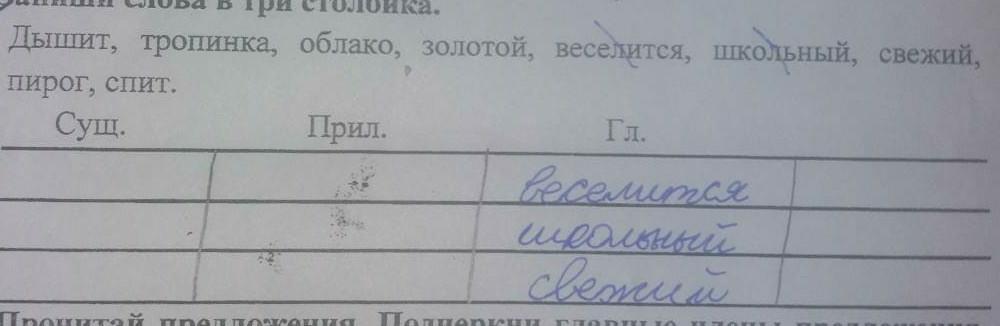 Запиши слова в три столбика.
Дышит, тропинка, облако, золотой, веселится, школьный, свежий,
пирог, спит.
Сущ. Прил. Гл.
веселится
школьный
свежий
Прочитай предложения. Подчеркни главные члены предложения